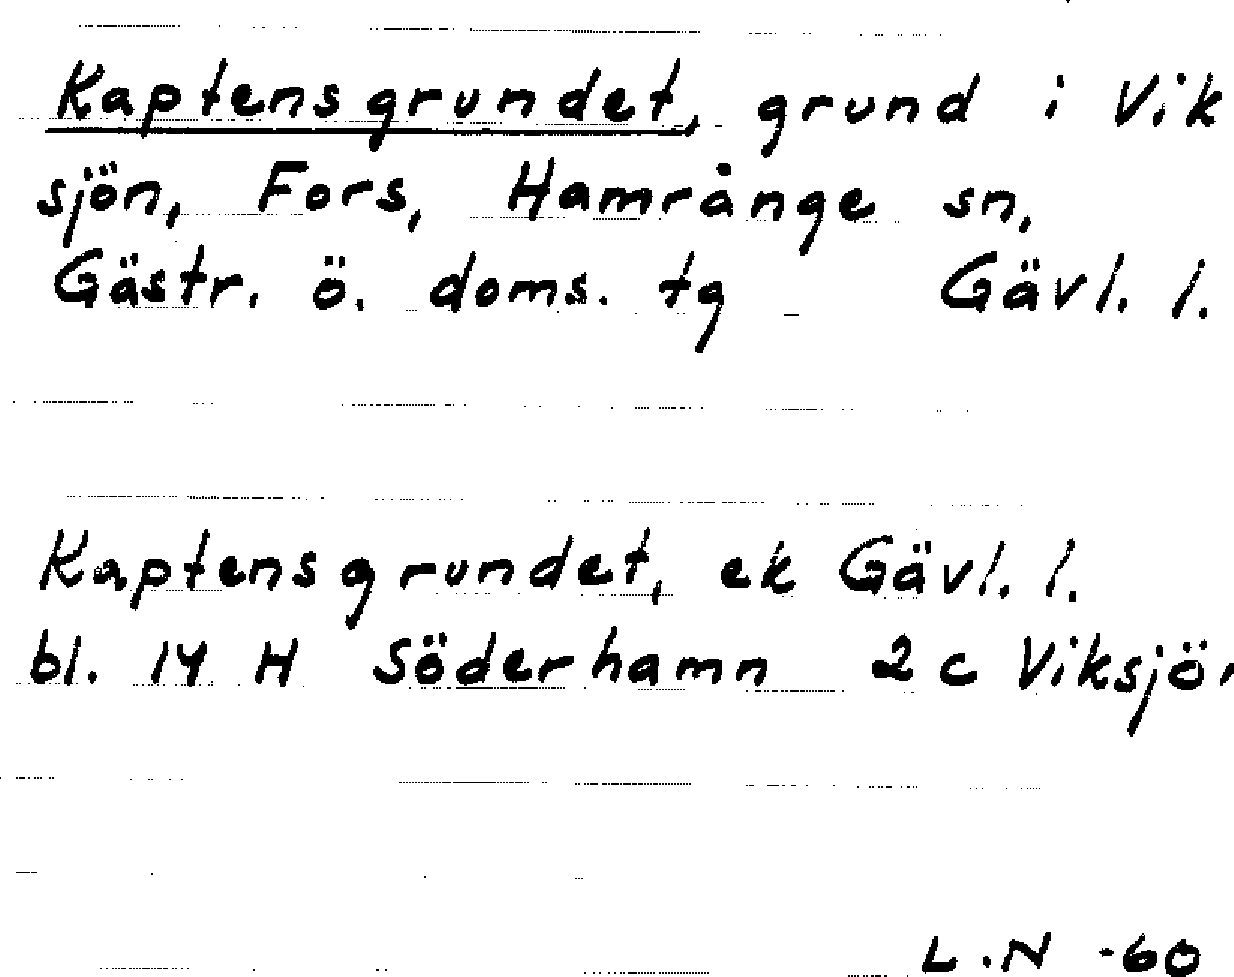 Kaptensgrundet, grund i Vik
sjön, Fors, Hamrånge sn,
Gästr. ö. doms. tg Gävl. l.
Kaptensgrundet, ek Gävl. l.
bl. 14 H Söderhamn 2 c Viksjön
L.N -60